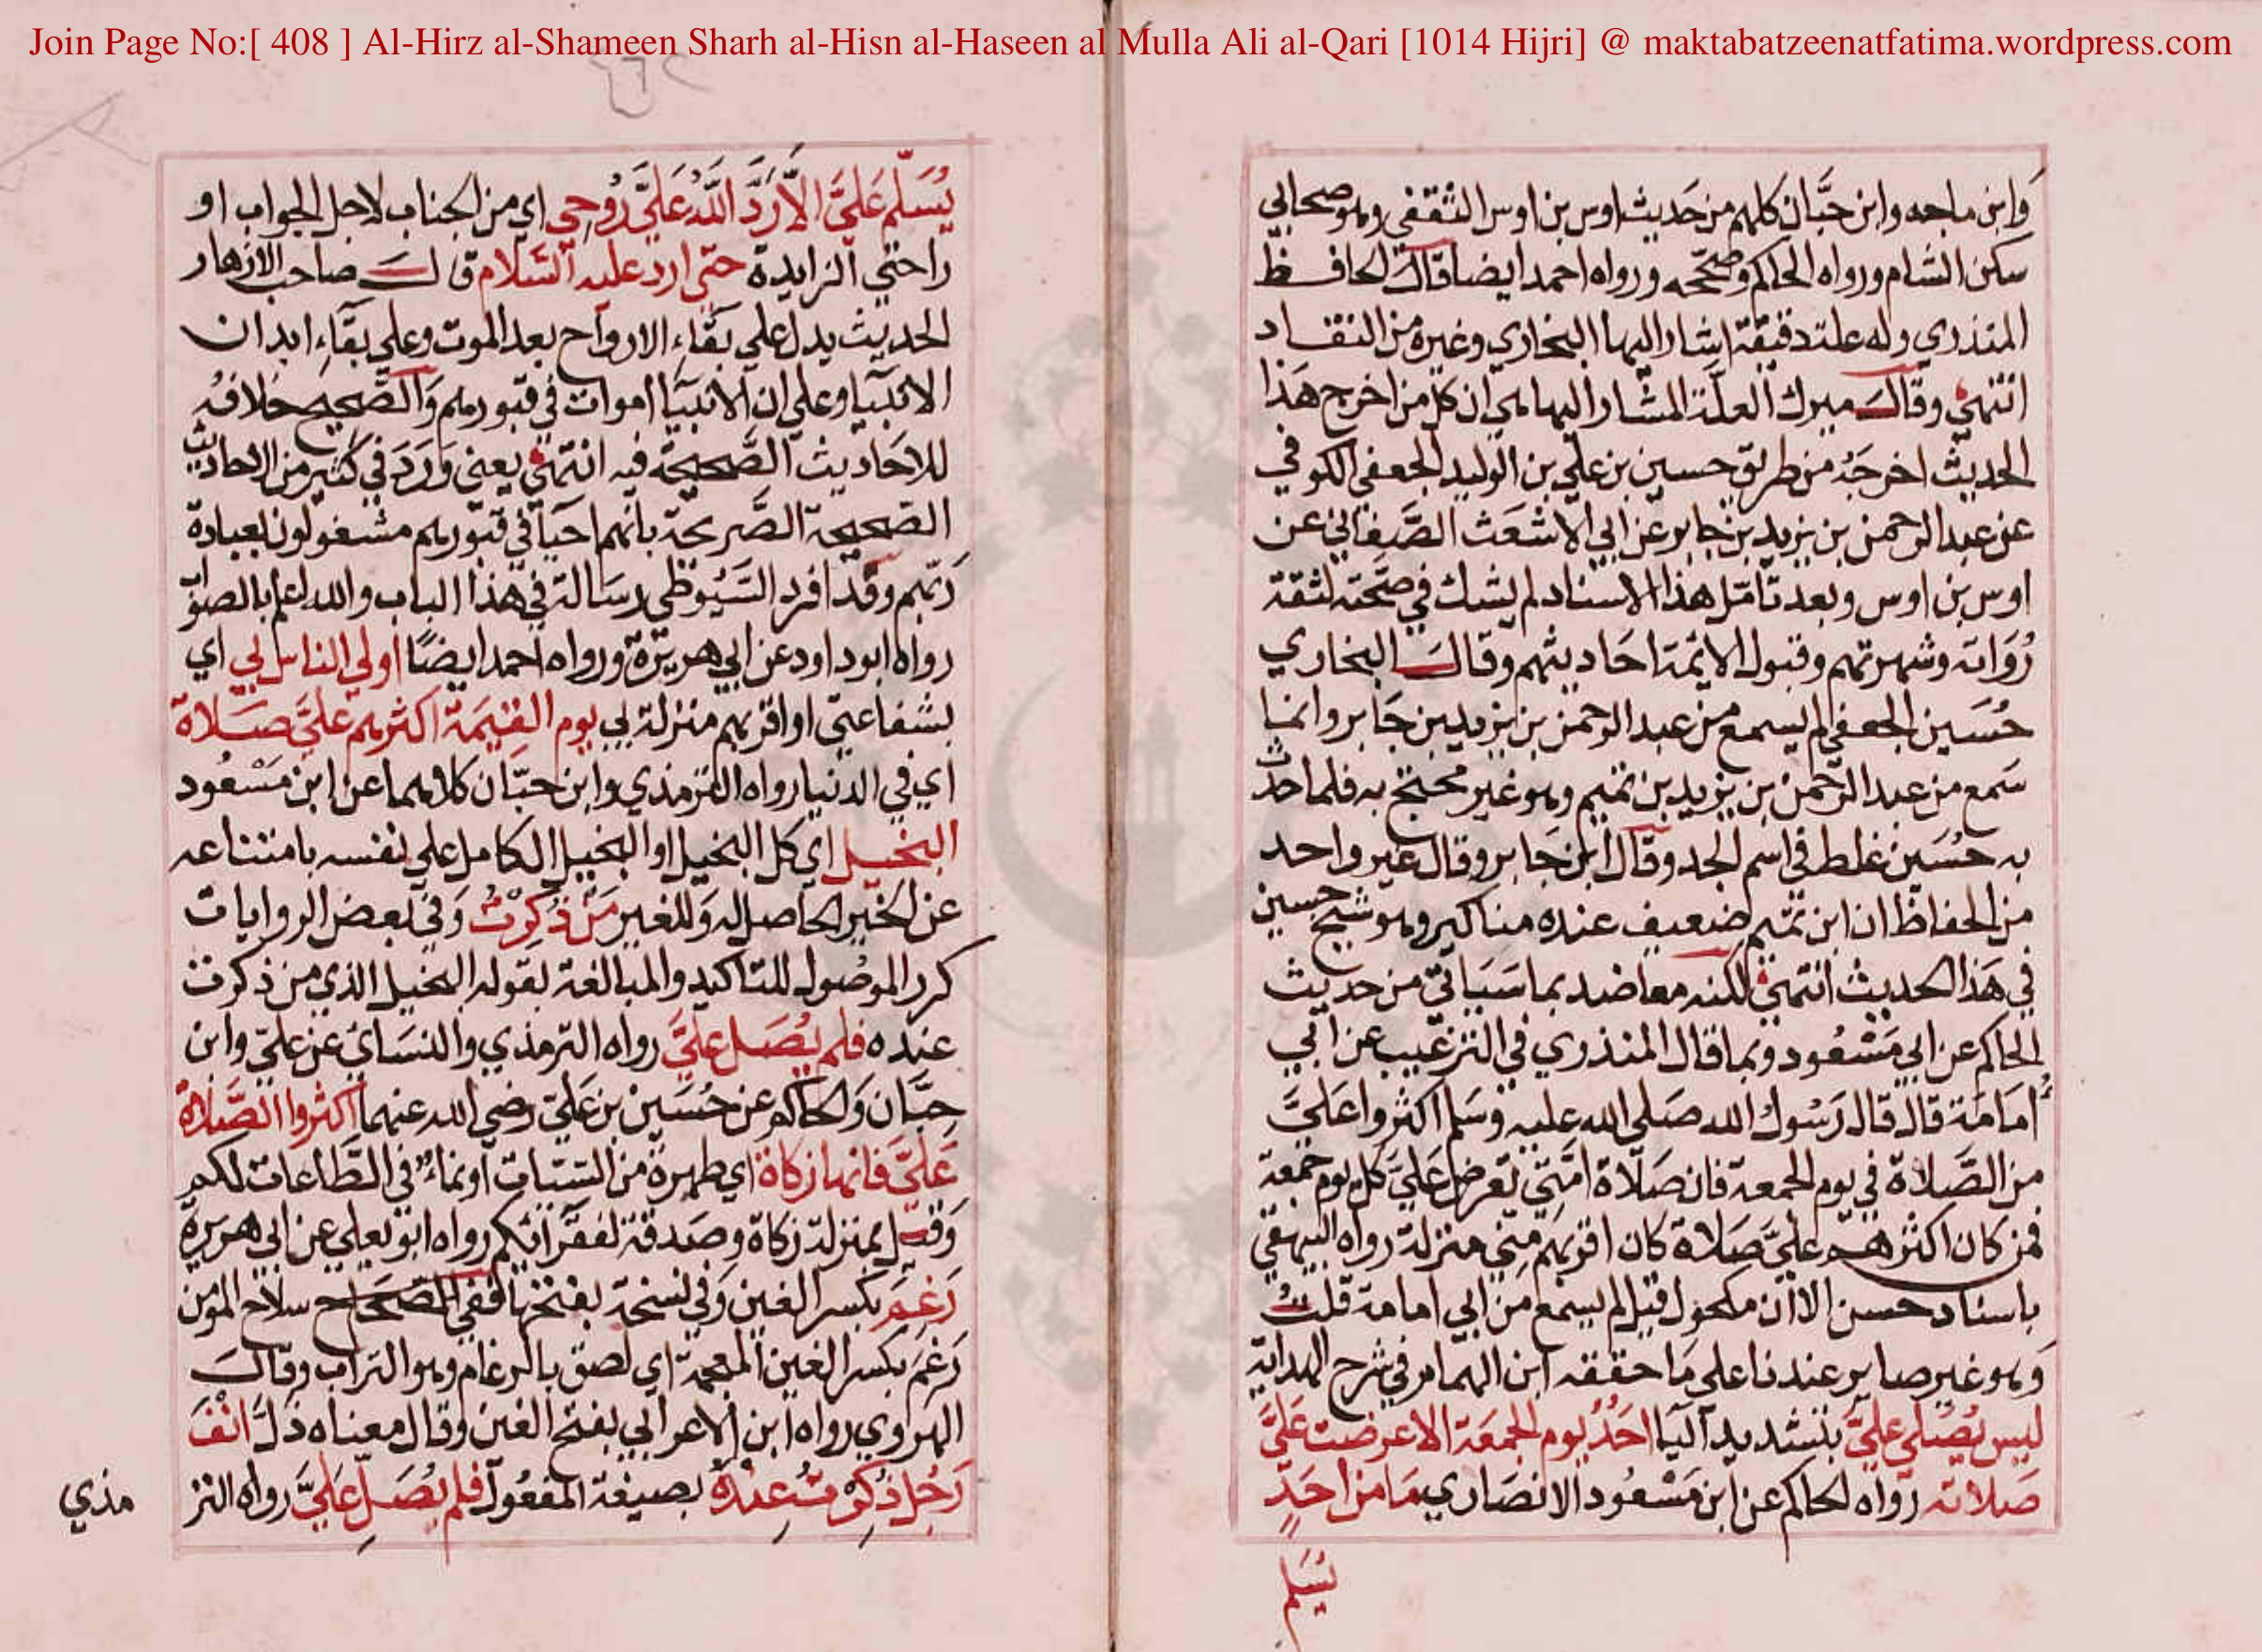 Join Page No:[ 408 ] Al-Hirz al-Shameen Sharh al-Hisn al-Haseen al Mulla Ali al-Qari [1014 Hijri] @ maktabatzeenatfatima.wordpress.com
وابن ماجه وابن حبان كلهم من حديث اوس بن اوس الثقفي وهو صحابي
سكن الشام ورواه الحاكم وصححه ورواه احمد ايضا قال الحافظ
المنذري وله علة دقيقة اشار اليها البخاري وغيره من النقاد
انتهي وقال ميرك العلة المشار اليها هي ان كل من اخرج هذا
الحديث اخرجه من طريق حسين بن علي بن الوليد الجعفي الكوفي
عن عبد الرحمن بن يزيد بن جابر عن ابي الاشعث الصغاني عن
اوس بن اوس وبعد تامل هذا الاسناد لم يشك في صحته لثقة
رُواته وشهرتهم وقبول الايمة احاديثهم وقال البخاري
حُسَين الجعفي لم يسمع من عبد الرحمن بن يزيد بن جابر وانما
سَمع من عبد الرحمن بن يزيد بن تميم وهو غير محتج به فلما حدث
به حُسَين غلط في اسم الجد وقال ابن جابر وقال غير واحد
من الحفاظ ان ابن تميم ضعيف عنده مناكير وهو شيخ حسين
في هَذا الحديث انتهي لكنه معاضد بما سَيَاتي من حديث
الحاكم عن ابي مَسْعُود وبما قال المنذري في الترغيب عن ابي
اُمامَة قال قال رَسُول الله صَلي الله عليه وَسَلم اكثروا عَليَّ
من الصَّلاة في يوم الجمعة فان صَلاة امَّتي تعرض عَليَّ كل يوم جمعة
فمن كان اكثرهم عليَّ صَلاة كان اقربهم مِني منزلة رواه البيهقي
باسناد حسن الا ان مكحول قيل لم يسمع من ابي امامة قلتُ
وَهو غير صاير عندنا على مَا حققه ابن الهمام في شرح الهداية
ليس يُصَلي عليَّ بتشديد اليا احَدٌ يوم الجمعَة الا عرضت عَليَّ
صَلاته رواه الحاكم عن ابن مَسْعُود الانصَاري مَا من احَدٍ
يُسَلم
يُسَلّم عَليَّ الاَّ رَدَّ اللَّهُ عَليَّ رُوحي اي من الجناب لاجل الجواب او
راحتي الزايدة حتي ارد عليه السَّلام قال صاحب الازهار
الحديث يدل علي بقَّاء الارواح بعد الموت وعلي بقَاءِ ابدان
الانبيا وعلي ان الانبيَا اموات في قبورهم وَالصَّحيح خلافُه
للاحَاديث الصَّحيحَة فيه انتهي يعني وَرَدَ في كثير من الاحاديث
الصَّحيحة الصَّريحة بانهم احيَا في قبورهم مشغولون بعبادة
رَبّهم وقد افرد السَّيُوطي رسَالة في هذا الباب والله اعلم بالصوَ
رواه ابو داود عن ابي هريرة ورواه احمد ايضًا اولي الناس بي اي
بشفاعتي او اقربهم منزلة بي يوم القيٰمَة اكثرهم عليَّ صَلاة
اي في الدنيا رواه الترمذي وابن حبّان كلاهما عن ابن مَسْعُود
البخيل اي كل البخيل او البخيل الكامل علي نفسه بامتناعه
عن الخير الحاصل له وَللغير مَنْ ذُكِرْتُ وَفي بَعض الروايات
كرر الموصُول للتاكيد والمبالغة لقوله البخيل الذي من ذكرت
عنده فلم يُصَل عليَّ رواه الترمذي والنسَاي عن عليّ وابن
حِبَّان وَالحاكم عن حُسَين بن عَليّ رضي الله عنهما اكثروا الصَّلاة
عَليَّ فانها زكاة اي طهرة من السيات او نماءٌ في الطَّاعات لكم
وَقيل بمنزلة زكاة وصَدقة لفقرايكم رواه ابو يعلي عن ابي هريرة
رَغِمَ بكسر الغين وَفي نسخة بفتحها ففي الصحَاح سلاح المؤمن
رَغَم بكسر الغين المعجمة اي لصق بالرغام وهو التراب وقال
الهروي رواه ابن الاعرابي بفتح الغين وقال معناه ذلَّ انْفَ
رَجُل ذُكِرْتُ عِنْدهُ بصيغة المفعُول فلم يُصَلِّ عَليَّ رواه التر
مذي